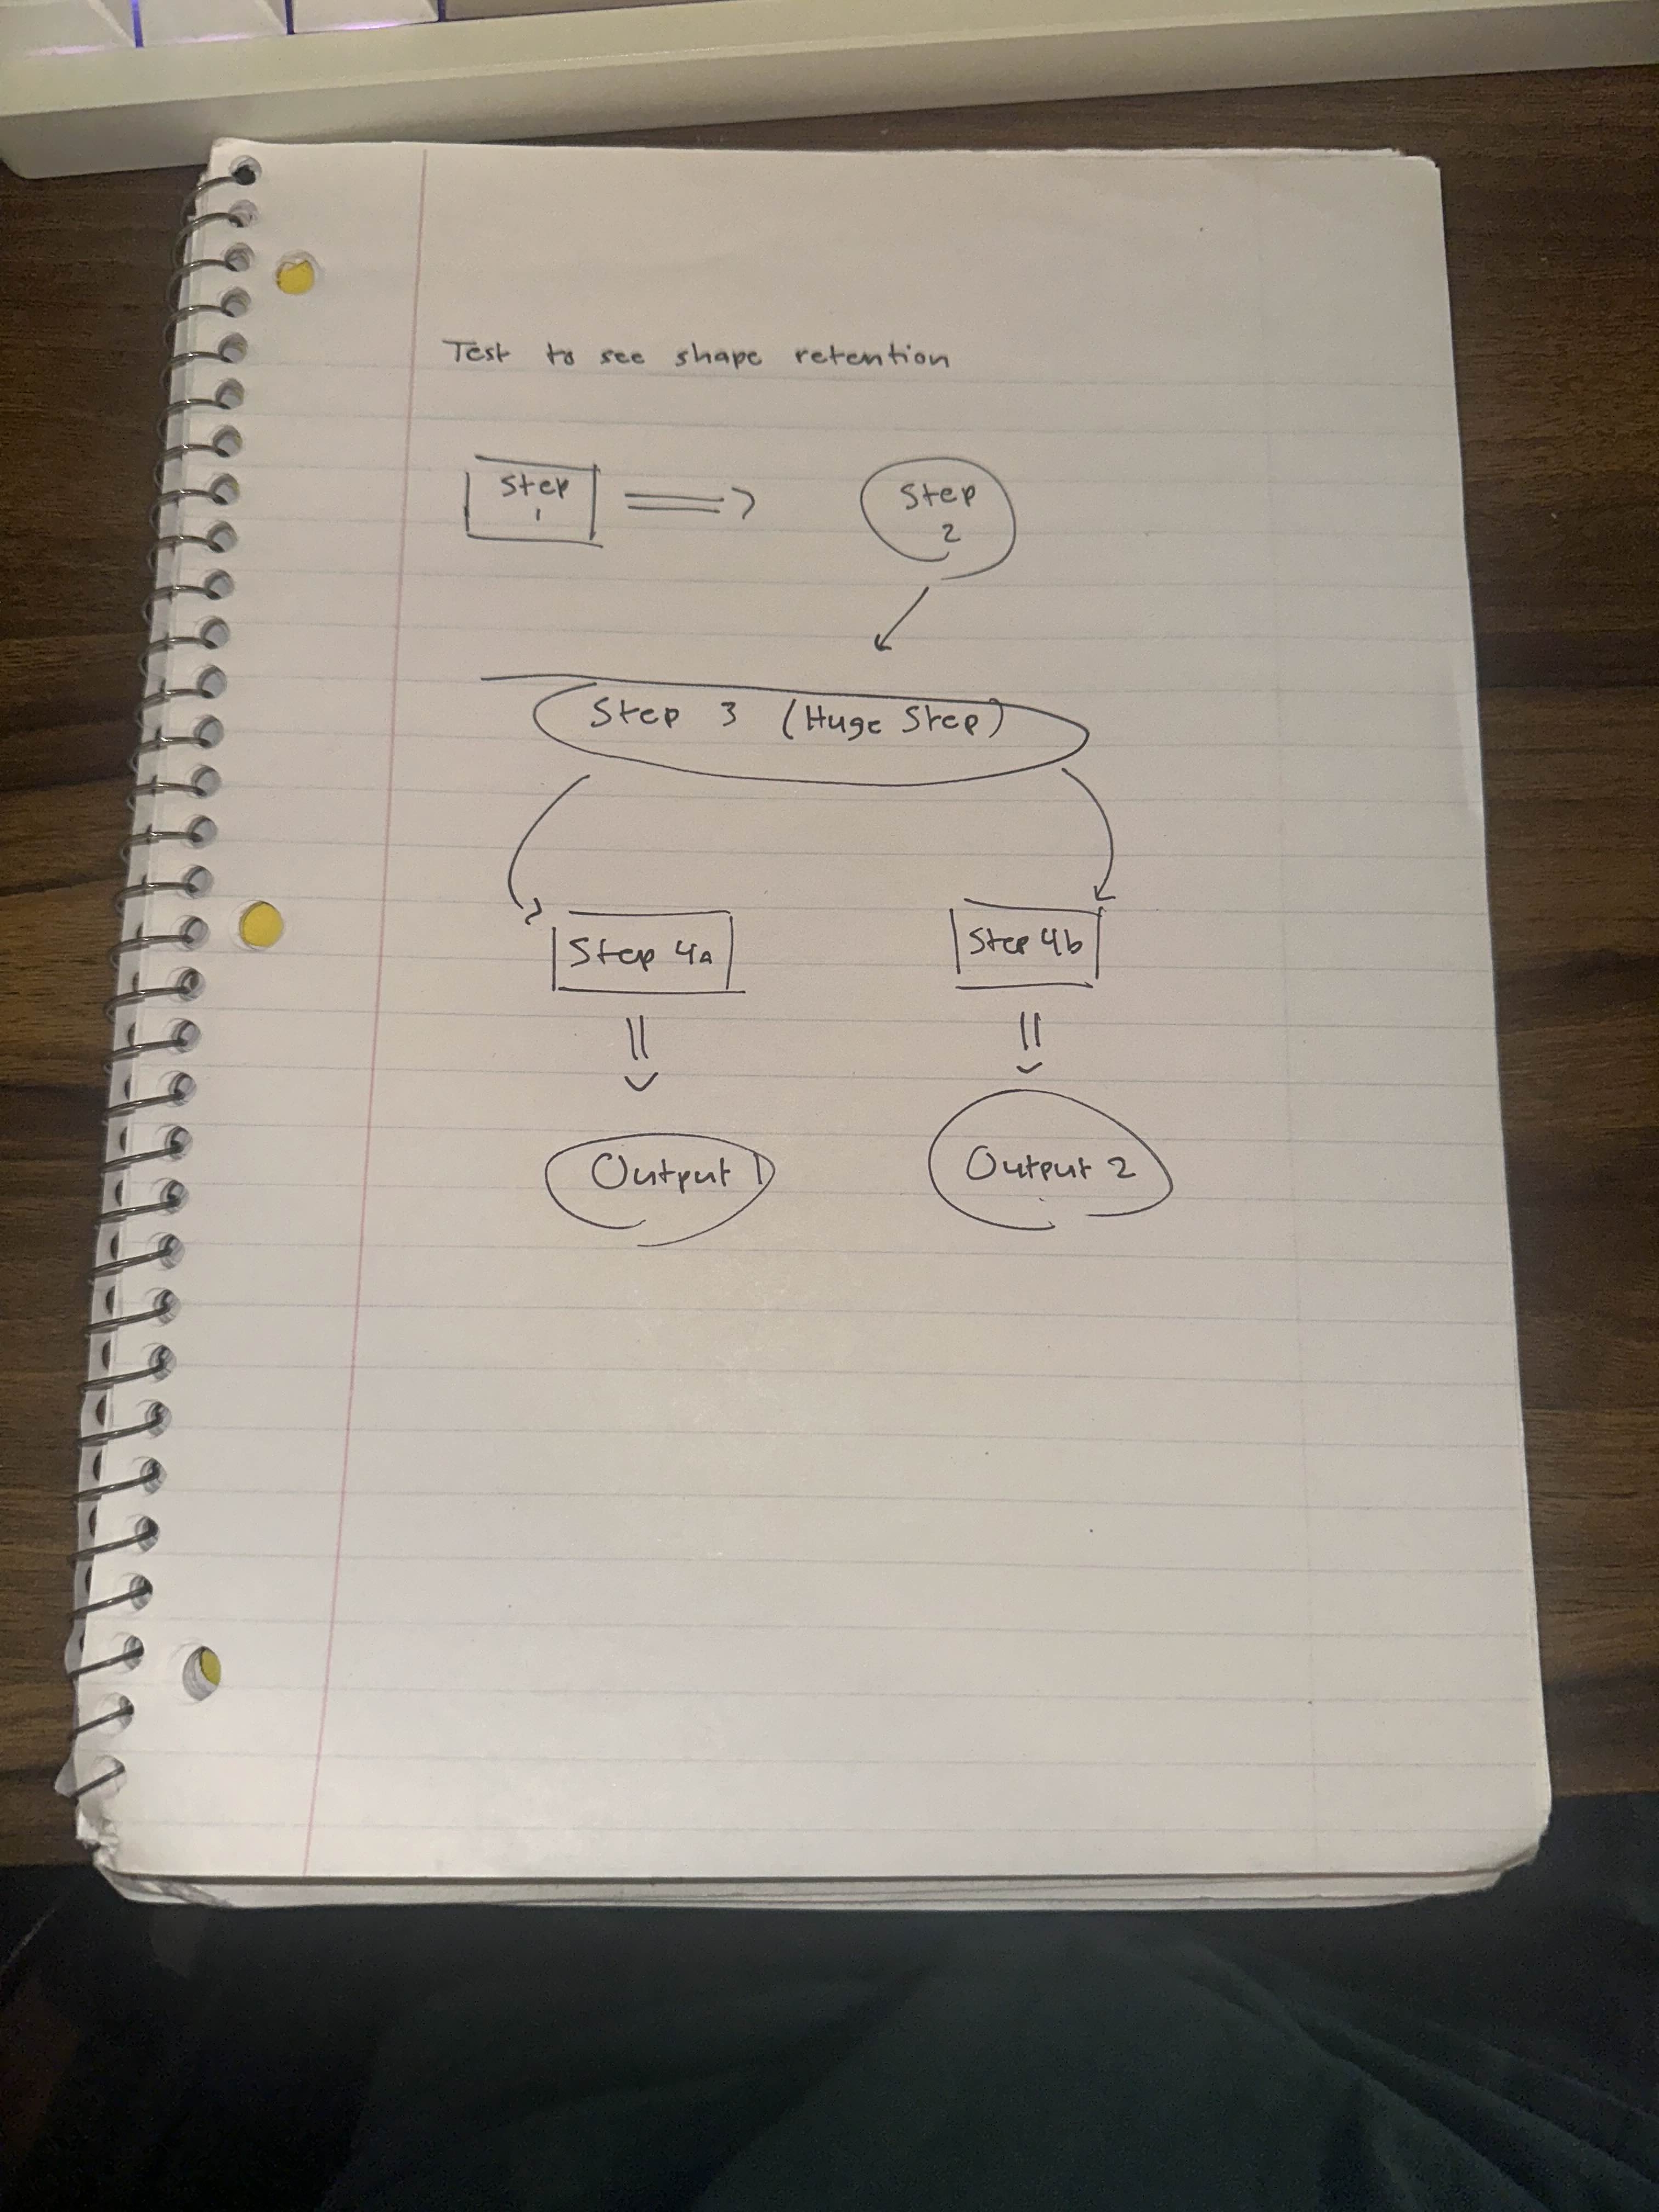 Test to see shape retention
Step
1
Step
2
Step 3 (Huge Step)
Step 4a
Step 4b
Output 1
Output 2